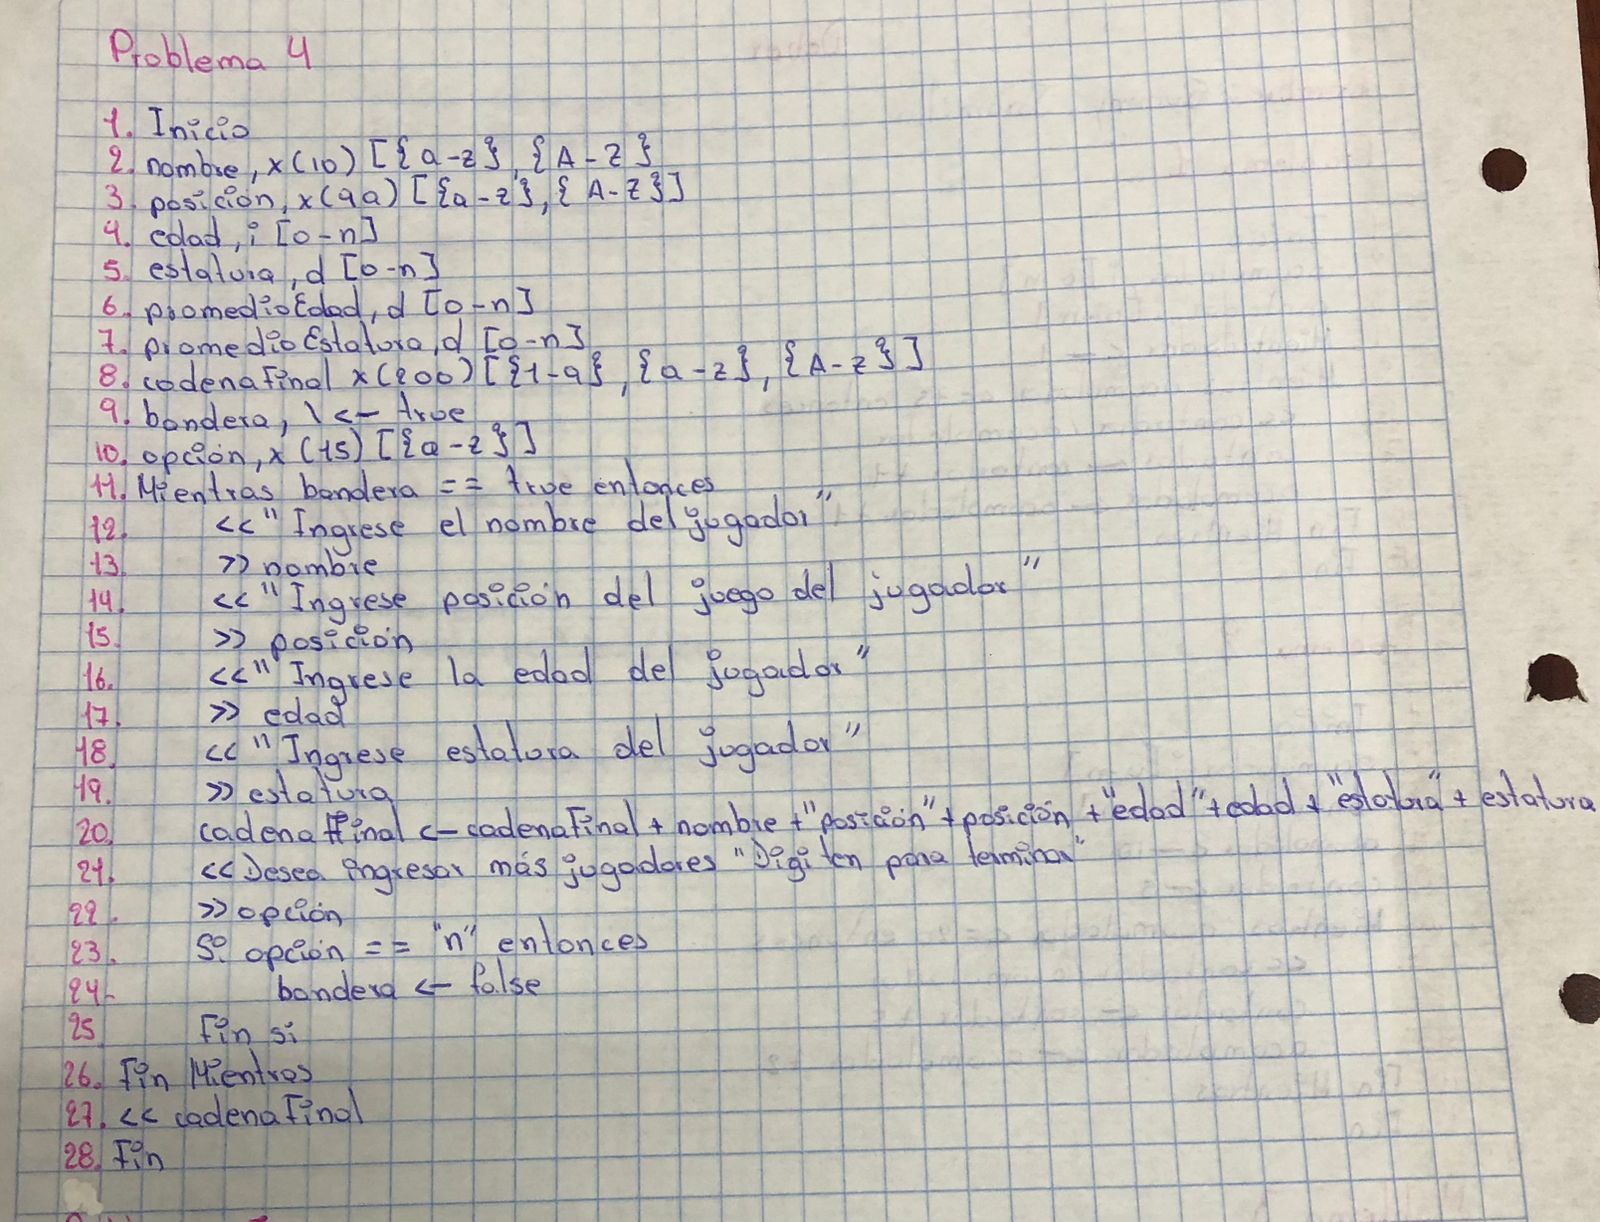 Problema 4
1. Inicio
2. nombre, x(10) [{a-z}, {A-Z}
3. posición, x(99) [{a-z}, {A-Z}]
4. edad, i [0-n]
5. estatura, d [0-n]
6. promedioEdad, d [0-n]
7. promedioEstatura, d [0-n]
8. cadenaFinal x(200) [{1-9}, {a-z}, {A-z}]
9. bandera, l <- true
10. opción, x (15) [{a-z}]
11. Mientras bandera == true entonces
12. <<"Ingrese el nombre del jugador"
13. >> nombre
14. <<"Ingrese posición del juego del jugador"
15. >> posición
16. <<"Ingrese la edad del jugador"
17. >> edad
18. <<"Ingrese estatura del jugador"
19. >> estatura
20. cadena Final <- cadenaFinal + nombre + "posición" + posición + "edad" + edad + "estatura" + estatura
21. << Desea ingresar más jugadores "Digiten para terminar"
22. >> opción
23. Si opción == "n" entonces
24. bandera <- false
25 Fin si
26. Fin Mientras
27. << cadenaFinal
28. Fin